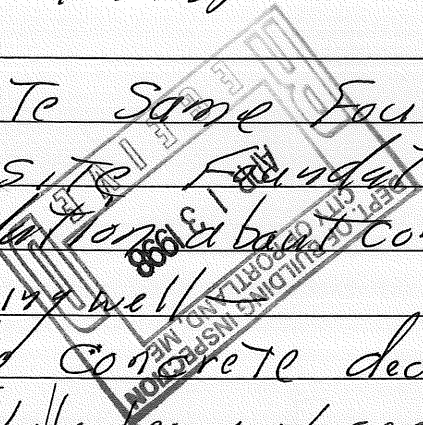 Te Same Fou
site Foundat
about co
ing well —
concrete dec
RECEIVED
APR 13 1998
DEPT. OF BUILDING INSPECTION
CITY OF PORTLAND, ME